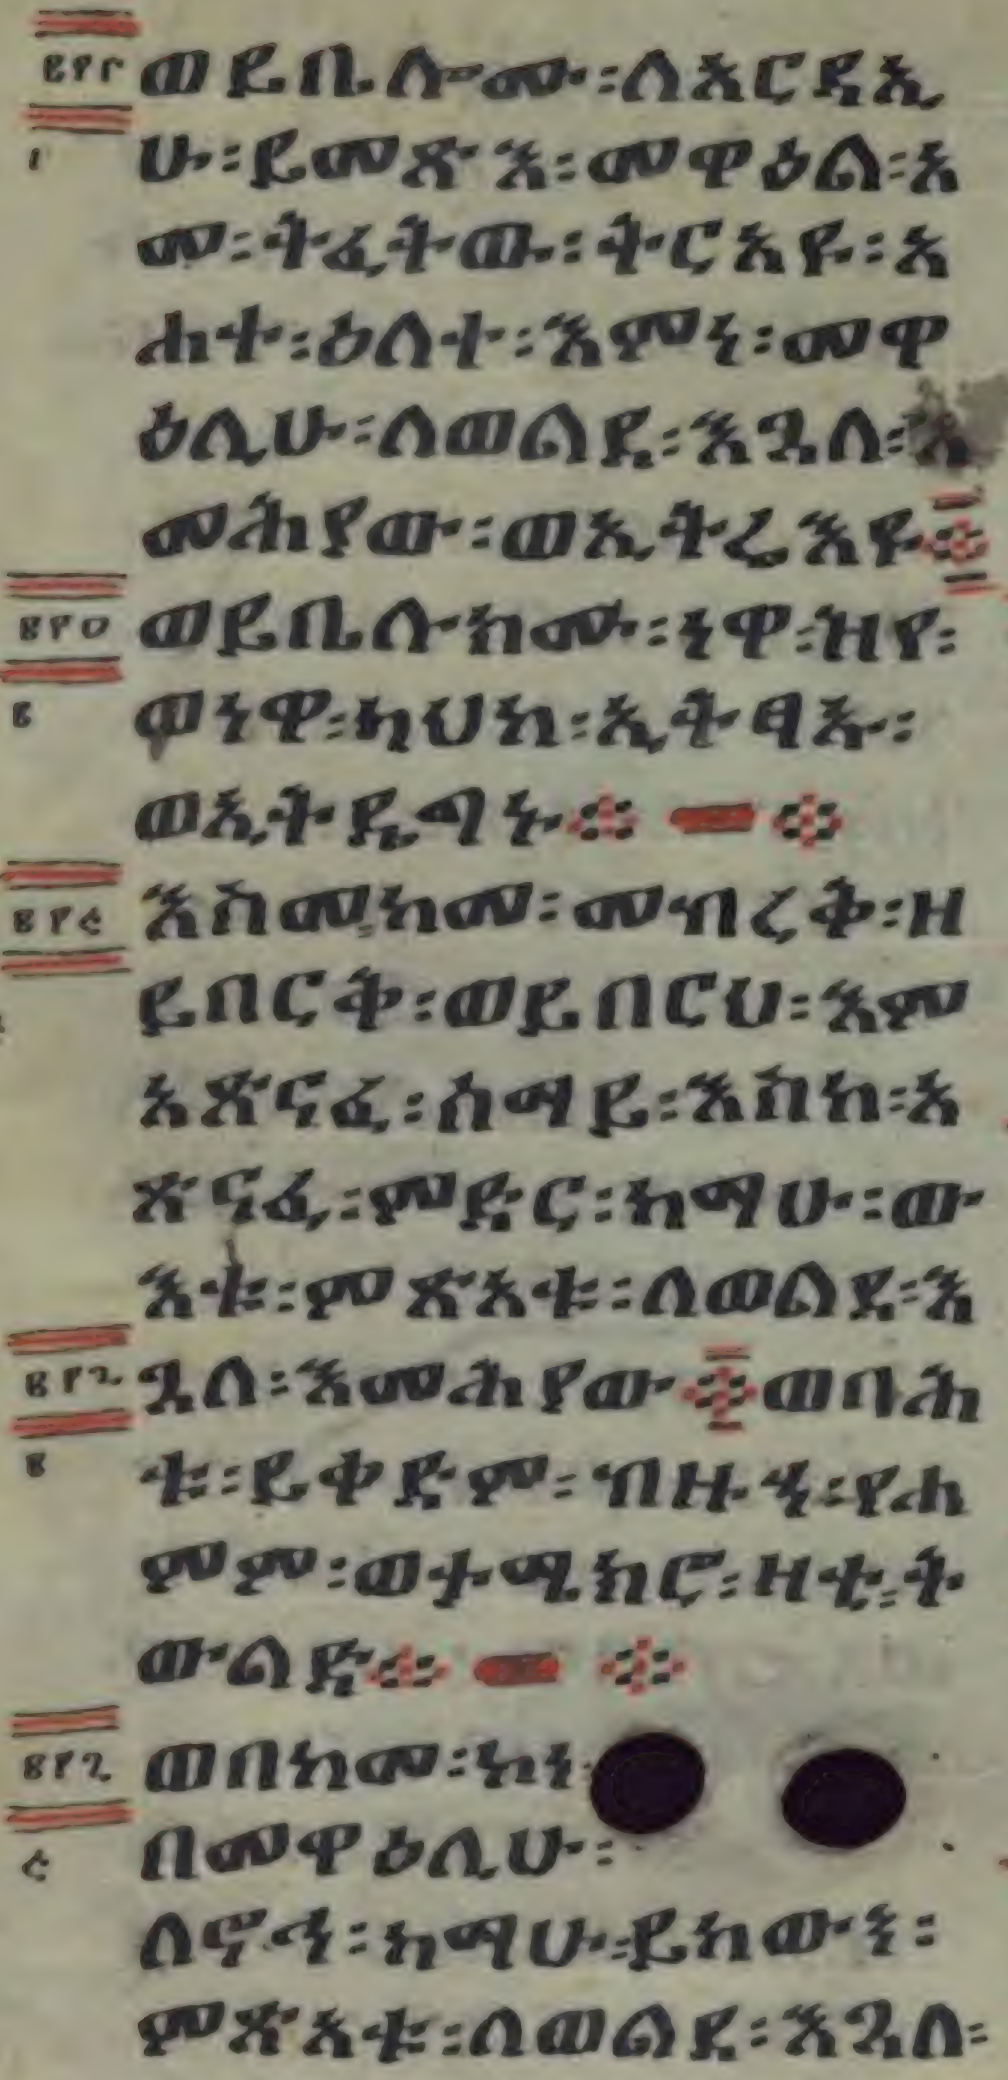 ፪፻፫ ወይቤሎሙ፡ለአርዳኢ
፲ ሁ፡ይመጽእ፡መዋዕል፡አ
መ፡ትፈትው፡ትርአዩ፡አ
ሐተ፡ዕለተ፡እምነ፡መዋ
ዕሊሁ፡ለወልደ፡እጓለ፡እ
መሕያው፡ወኢትሬእዩ፨
፪፻፬ ወይቤሉክሙ፡ነዋ፡ዝየ፡
፪ ወነዋ፡ካህከ፡ኢትፃኡ፡
ወኢትዴግኑ፨ ፨
፪፻፭ እስመ፡ከመ፡መብረቅ፡ዘ
ይበርቅ፡ወይበርህ፡እም
አጽናፈ፡ሰማይ፡እስከ፡አ
ጽናፈ፡ምድር፡ከማሁ፡ው
እቱ፡ምጽአቱ፡ለወልደ፡እ
፪፻፮ ጓለ፡እመሕያው፨ወባሕ
፪ ቱ፡ይቀድም፡ብዙኃ፡የሐ
ምም፡ወተሚክሮ፡ዛቲ፡ት
ውልድ፨ ፨
፪፻፯ ወበከመ፡ኮነ፡
፭ በመዋዕሊሁ፡
ለኖኅ፡ከማሁ፡ይከውን፡
ምጽአቱ፡ለወልደ፡እጓለ፡